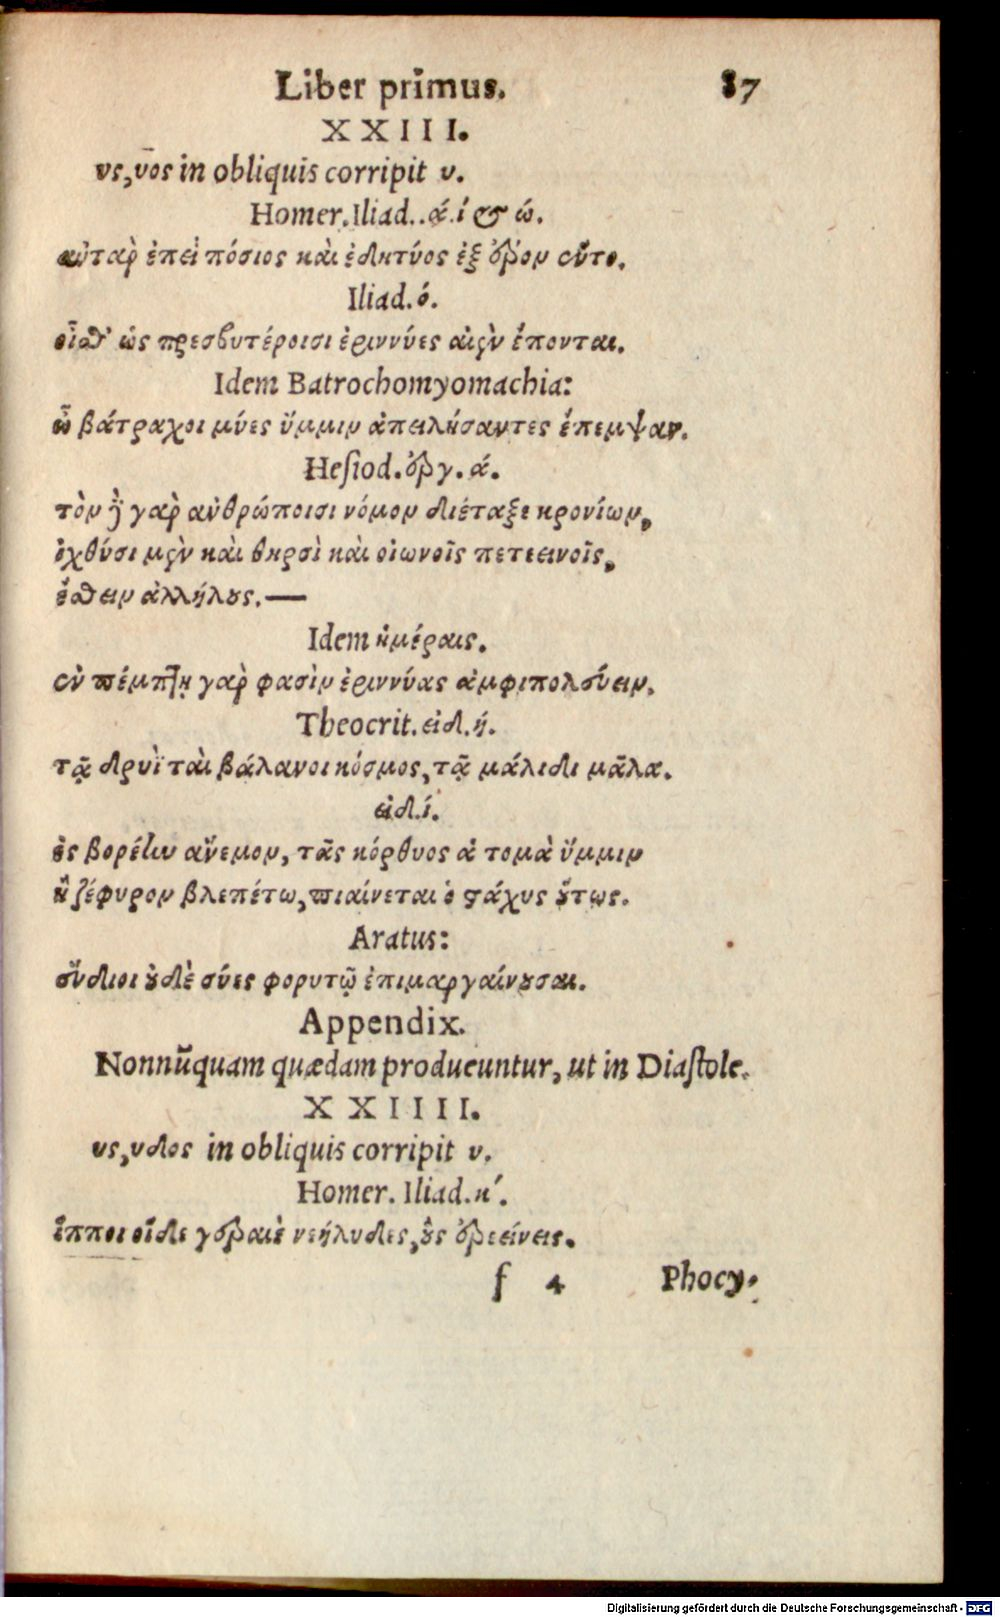 Liber primus. 87
XXIII.
υς,υος in obliquis corripit υ.
Homer. Iliad..ά.ί & ώ.
αὐτὰρ ἐπεὶ πόσιος καὶ ἐδητύος ἐξ ὄρον ἕντο.
Iliad.ό.
οἶσθ' ὡς πρεσβυτέροισι ἐριννύες αἰὲν ἕπονται.
Idem Batrochomyomachia:
ὦ βάτραχοι μύες ὔμμιν ἀπειλήσαντες ἔπεμψαν.
Hesiod.ὄργ.ά.
τὸν δὲ γὰρ ἀνθρώποισι νόμον διέταξε κρονίων,
ἰχθύσι μὲν καὶ θηρσὶ καὶ οἰωνοῖς πετεεινοῖς,
ἔσθειν ἀλλήλους.—
Idem ἡμέραις.
ἐν πέμπτῃ γὰρ φασὶν ἐριννύας ἀμφιπολεύειν.
Theocrit.εἰδ.ή.
τᾷ δρυῒ ταὶ βάλανοι κόσμος, τᾷ μάλιδι μᾶλα.
εἰδ.ί.
ἐς βορέην ἄνεμον, τᾶς κόρθυος ἁ τομὰ ὔμμιν
ἢ ζέφυρον βλεπέτω, πιαίνεται ὁ στάχυς οὕτως.
Aratus:
εὔδιοι οὐδὲ σύες φορυτῷ ἐπιμαργαίνουσαι.
Appendix.
Nonnūquam quædam producuntur, ut in Diastole.
XXIIII.
υς,υδος in obliquis corripit υ.
Homer. Iliad.κ'.
ἵπποι οἵδε γεραιὲ νεήλυδες, οὓς ἐρεείνεις.
f 4 Phocy-
Digitalisierung gefördert durch die Deutsche Forschungsgemeinschaft - DFG